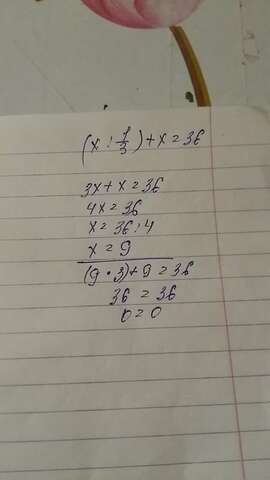 (x : 1/3) + x = 36
3x + x = 36
4x = 36
x = 36 : 4
x = 9
(9 * 3) + 9 = 36
36 = 36
0 = 0